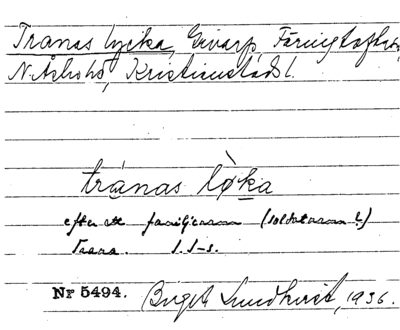 Tranas lycka, Givarp, Färingtofta,
N. Åsbo hd, Kristianstads l.
tránas lø̀ka
efter ett familjenamn (soldatnamn?)
Trana. S. S-s.
Nr 5494. Birgit Lundkvist, 1936.